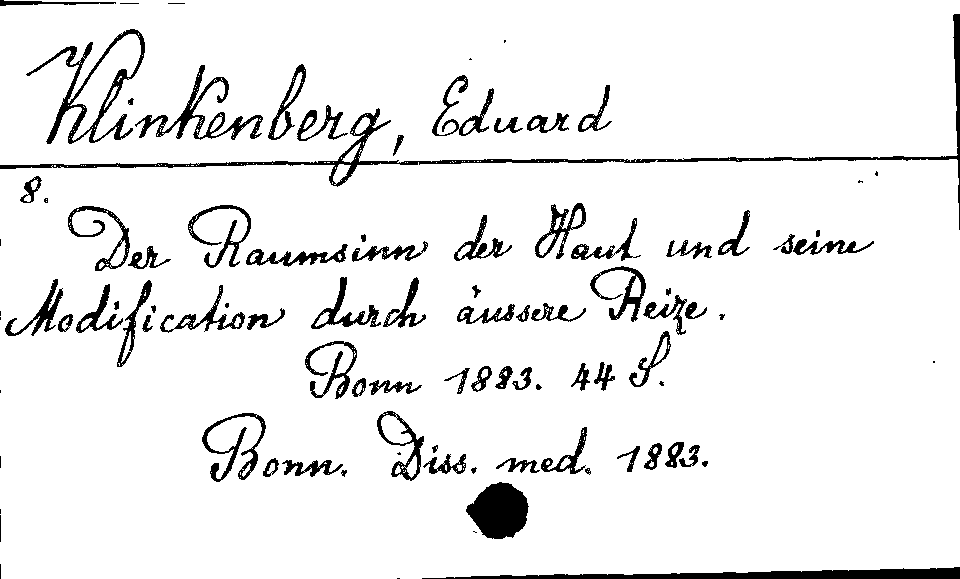 Klinkenberg, Eduard
8.
Der Raumsinn der Haut und seine
Modification durch äussere Reize.
Bonn 1883. 44 S.
Bonn. Diss. med. 1883.